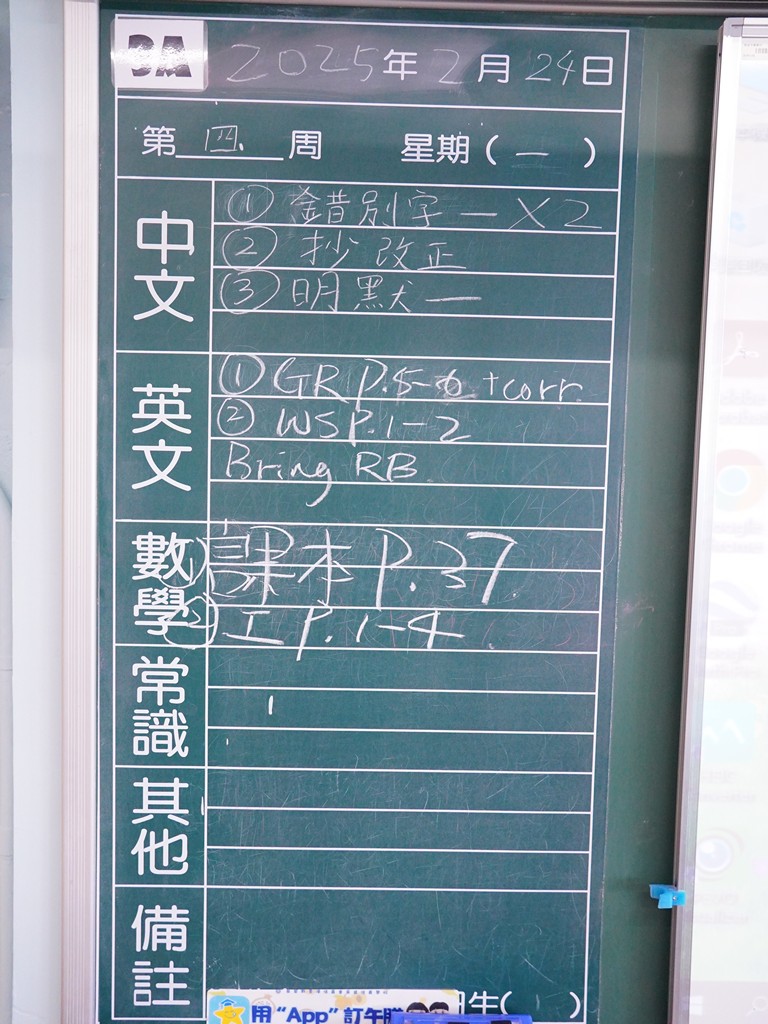 3A 2025年2月24日
第四周 星期(一)
中文
① 錯別字一 X2
② 抄改正
③ 明默一
英文
① GR P.5-6 + corr.
② WS P.1-2
Bring RB
數學
① 課本 P.37
② 工 P.1-4
常識
其他
備註
用 "App" 訂午膳